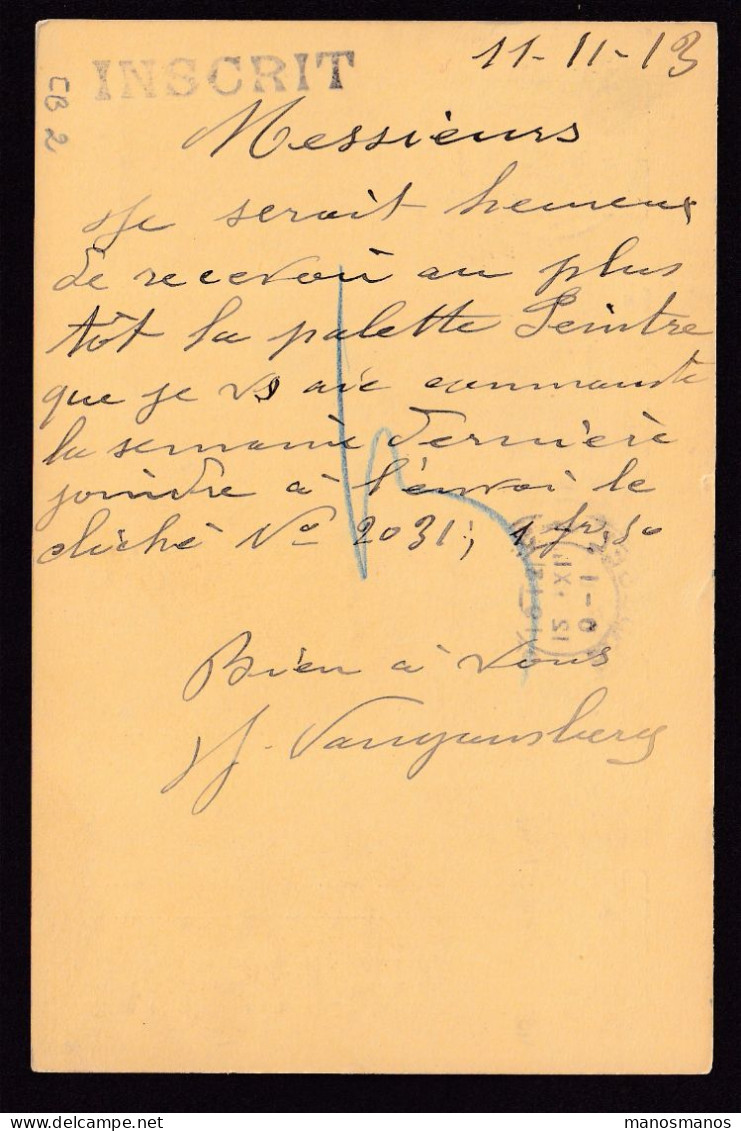 INSCRIT
11-11-13
CB 2
Messieurs
Je serait heureux
de recevoir au plus
tôt la palette Peintre
que je vs aie commandé
la semaine dernière
joindre à l'envoi le
cliché No 2031; 1 fr, 50
12 XI
Bien à vous
manosmanos